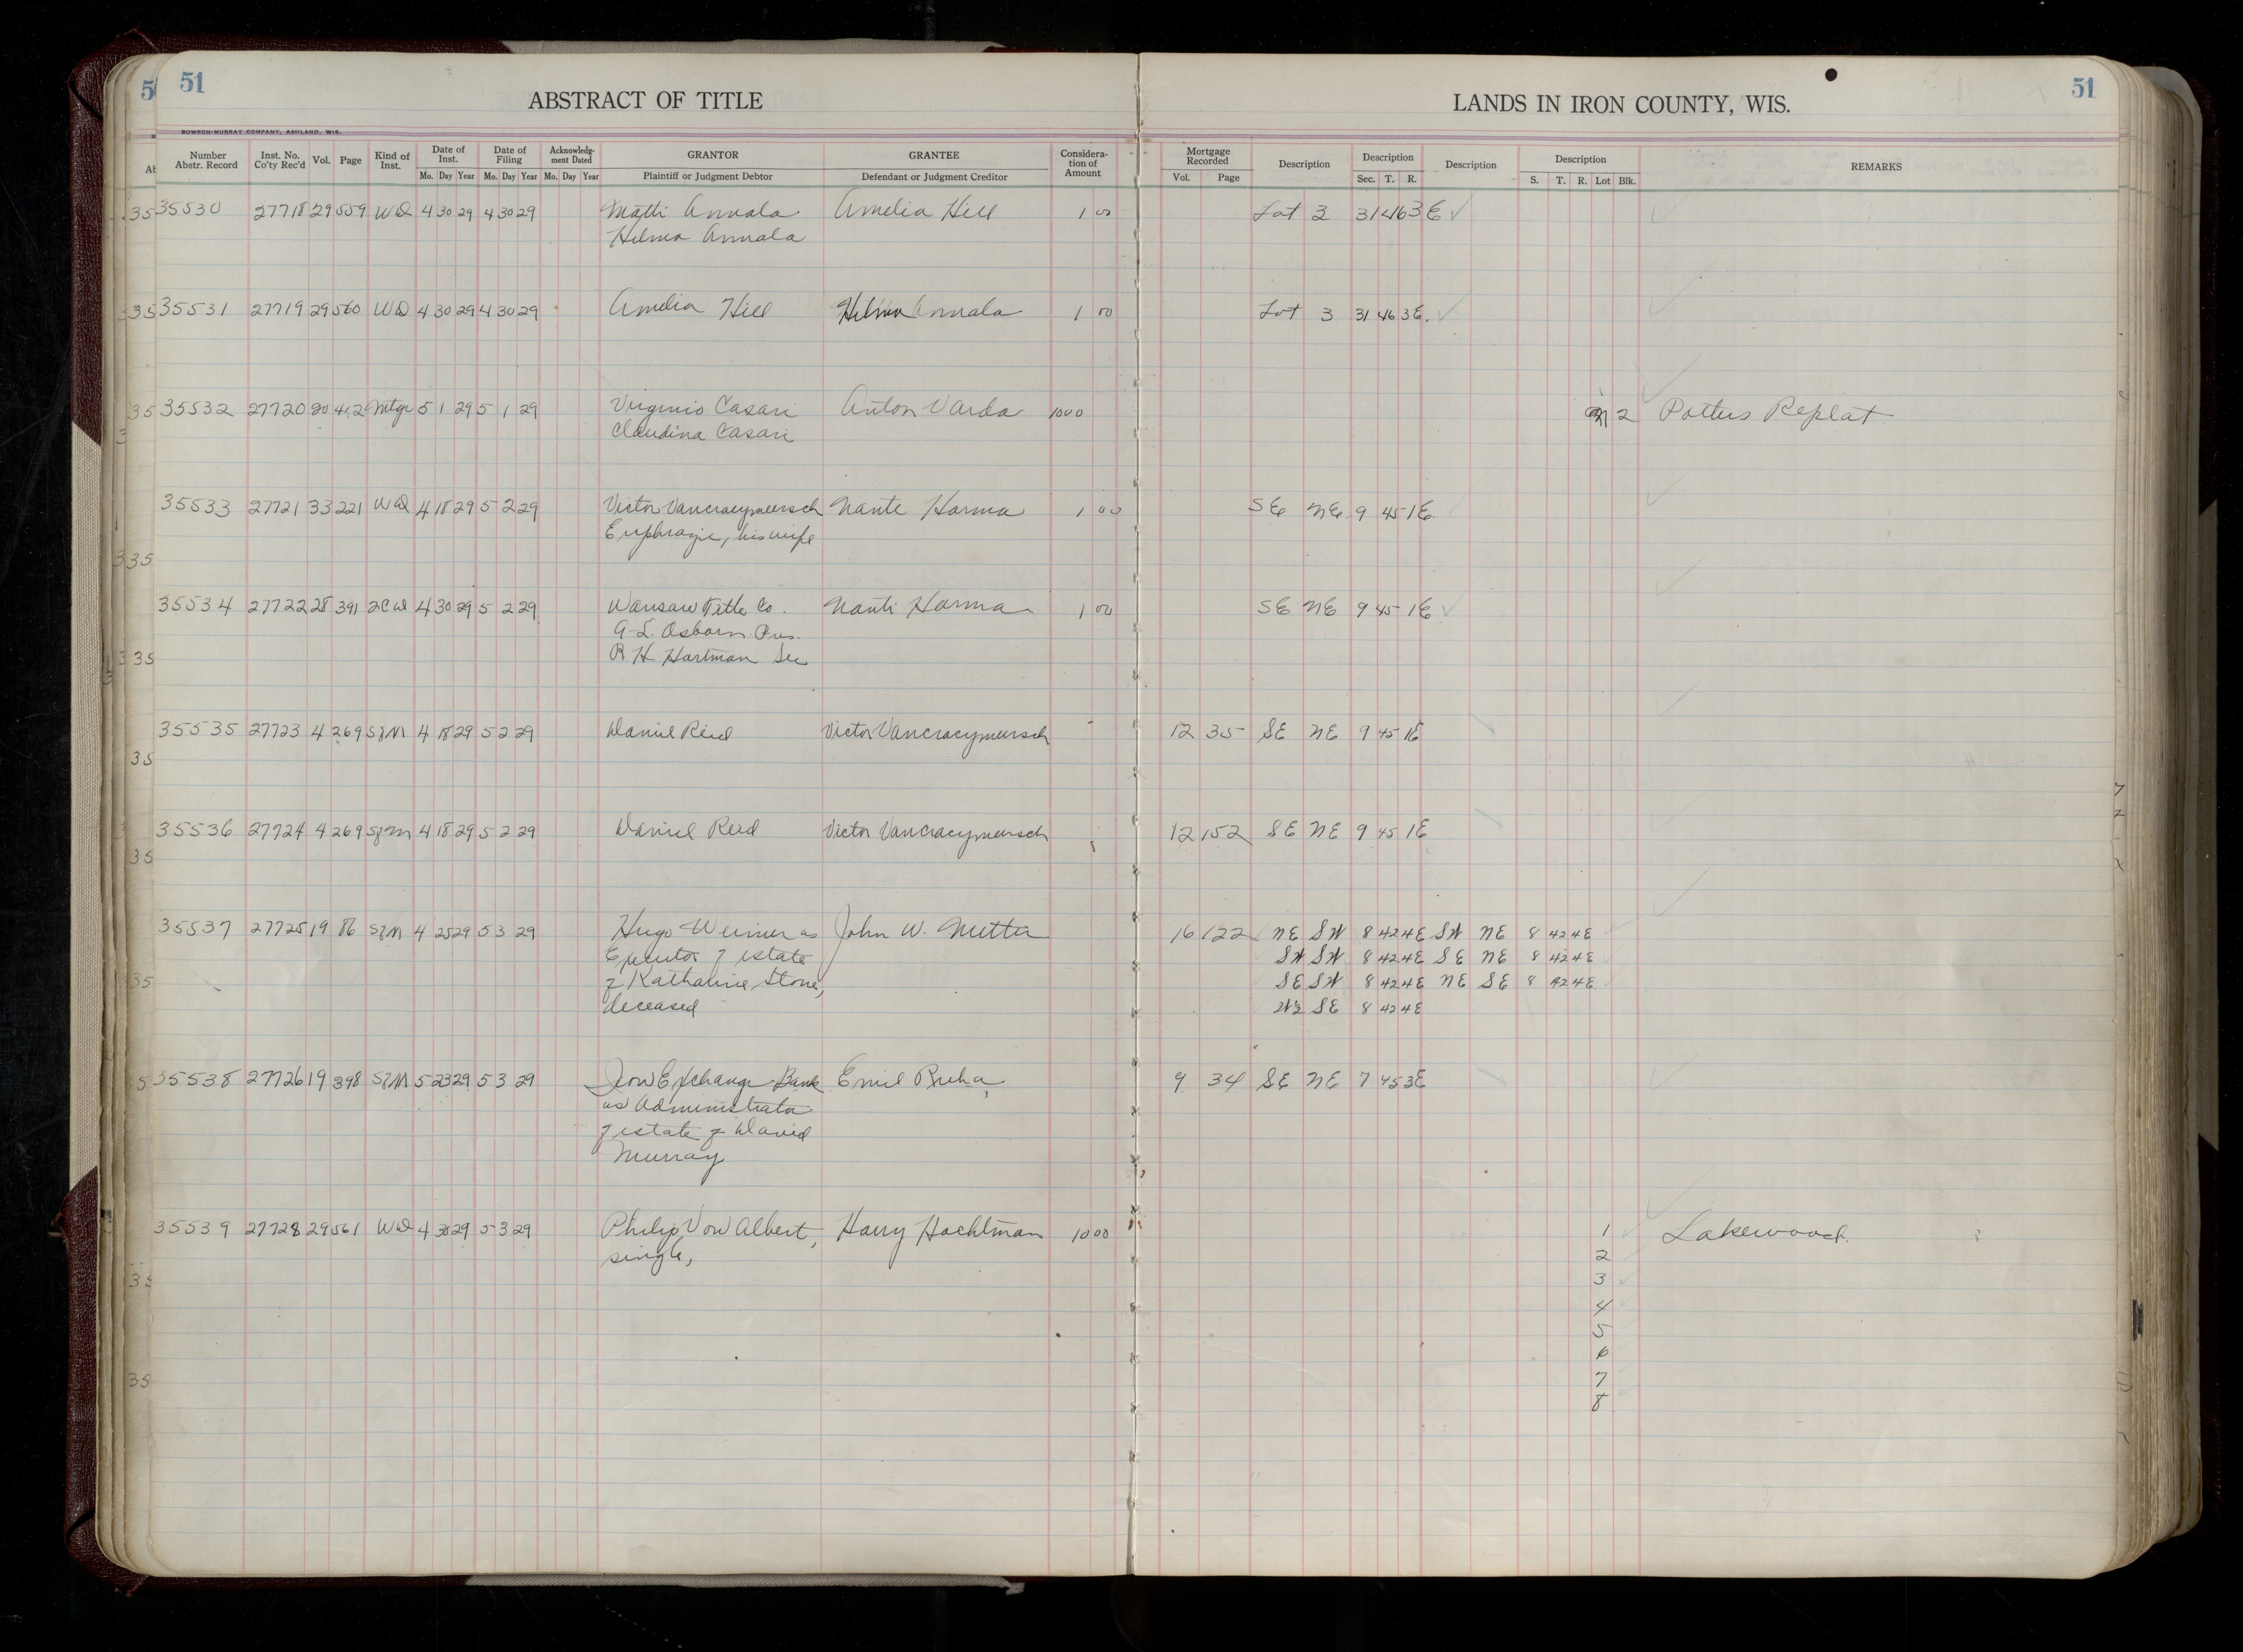 51
ABSTRACT OF TITLE
LANDS IN IRON COUNTY, WIS.
51
BOWRON-MURRAY COMPANY, ASHLAND, WIS.
Number Abstr. Record Inst. No. Co'ty Rec'd Vol. Page Kind of Inst. Date of Inst. Mo. Day Year Date of Filing Mo. Day Year Acknowledgment Dated Mo. Day Year GRANTOR Plaintiff or Judgment Debtor GRANTEE Defendant or Judgment Creditor Consideration of Amount Mortgage Recorded Vol. Page Description Description Sec. T. R. Description Description S. T. R. Lot Blk. REMARKS
35530 27718 29 559 WD 4 30 29 4 30 29 Matti Annala Amelia Hill 1 00 Lot 3 31 46 3E
Hilma Annala
35531 27719 29 560 WD 4 30 29 4 30 29 Amelia Hill Hilma Annala 1 00 Lot 3 31 46 3E.
35532 27720 20 412 Mtge 5 1 29 5 1 29 Virginio Casari Anton Varda 1000 2 Potters Replat
Claudina Casari
35533 27721 33 221 WD 4 18 29 5 2 29 Victor Vancraeymeersch Nante Harma 1 00 SE NE 9 45 1E
Euphrazie, his wife
35534 27722 28 391 2CW 4 30 29 5 2 29 Wausau Title Co. Nanti Harma 1 00 SE NE 9 45 1E
A. L. Osborn Pres.
R H Hartman Sec
35535 27723 4 269 S/M 4 18 29 5 2 29 Daniel Reid Victor Vancraeymeersch 12 35 SE NE 9 45 1E
35536 27724 4 269 S/M 4 18 29 5 2 29 Daniel Reid Victor Vancraeymeersch 12 152 SE NE 9 45 1E
35537 27725 19 86 S/M 4 25 29 5 3 29 Hugo Weimer as John W. Mutter 16 122 NE SW 8 42 4E SW NE 8 42 4E
Executor of estate SW SW 8 42 4E SE NE 8 42 4E
of Katharine Stone, SE SW 8 42 4E NE SE 8 42 4E
deceased W½ SE 8 42 4E
35538 27726 19 398 S/M 5 23 29 5 3 29 Iron Exchange Bank Emil Ruha 9 34 SE NE 7 45 3E
as Administrator
of estate of David
Murray
35539 27728 29 561 WD 4 30 29 5 3 29 Philip Von Albert, Harry Hachtman 10 00 1 Lakewood.
single, 2
3
4
5
6
7
8